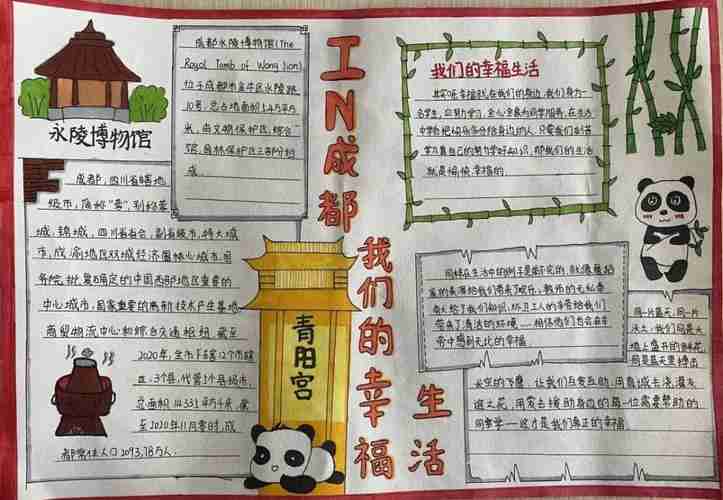 工IN成都
我们的幸福
生活
永陵博物馆
成都永陵博物馆(The
Royal Tomb of Wang Jian)
位于成都市金牛区永陵路
10号,总占地面积
米,由文物保护区,综合
馆,园林保护区三部分构
成.
成都,四川省辖地
级市,简称“蓉”,别称蓉
城,锦城,四川省省会,副省级市,特大城
市,成渝地区双城经济圈核心城市,国
务院批复确定的中国西部地区重要的
中心城市,国家重要的高新技术产业基地,
商贸物流中心和综合交通枢纽.截至
2020年,全市下辖12个市辖
区,3个县,代管5个县级市,
总面积14335平方千米,截
至2020年11月零时,成
都常住人口2093.78万人.
青阳宫
我们的幸福生活
其实呀幸福就在我们的身边,我们身为一
名学生,应努力学习,全心全意为同学服务,在生活
中学会把快乐分给身边的人,只要我们刻苦
学习靠自己的努力学好知识,那我们的生活
就是愉快,幸福的.
同样在生活中的例子是数不完的,就像蘑菇
老师给了我们知识,环卫工人的辛苦给我们
带来了清洁的环境……相信他们也会在辛
劳中感到无比的幸福.
同一片蓝天,同一片
沃土,我们同是大
地上盛开的鲜花,
同是蓝天里搏击
长空的飞鹰,让我们互爱互助,用真诚去浇灌友
谊之花,用爱去援助身边的每一位需要帮助的
同学……这才是我们真正的幸福.